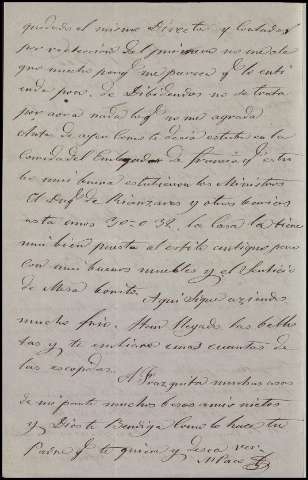 quedado el mismo Director y tratados
por redaccion del primero no me
que mucho porq.e me parece q.e lo enti
enda poca. de Dibidendos no se trata
por aora nada lo q.e no me agrada
Antes de ayer como te decia estube en la
Comida del Embajador de francia q.e estu
bo mui buena estubieron los Ministros
El Duq.e de Rianzares y otros barios
asta unos 30 o 32. la casa la tiene
mui bien puesta al estilo antiguo pero
con mui buenos muebles y el serbicio
de Mesa bonito.
Aqui sigue aziendo
mucho frio. Han llegado las bello
tas y te enbiare unas cuantas de
las escojidas.
A Frazquita muchas cosas
de mi parte muchos besos a mis nietos
y Dios te Bendiga como lo hace tu
Padre q.e te quiere y desea ver.